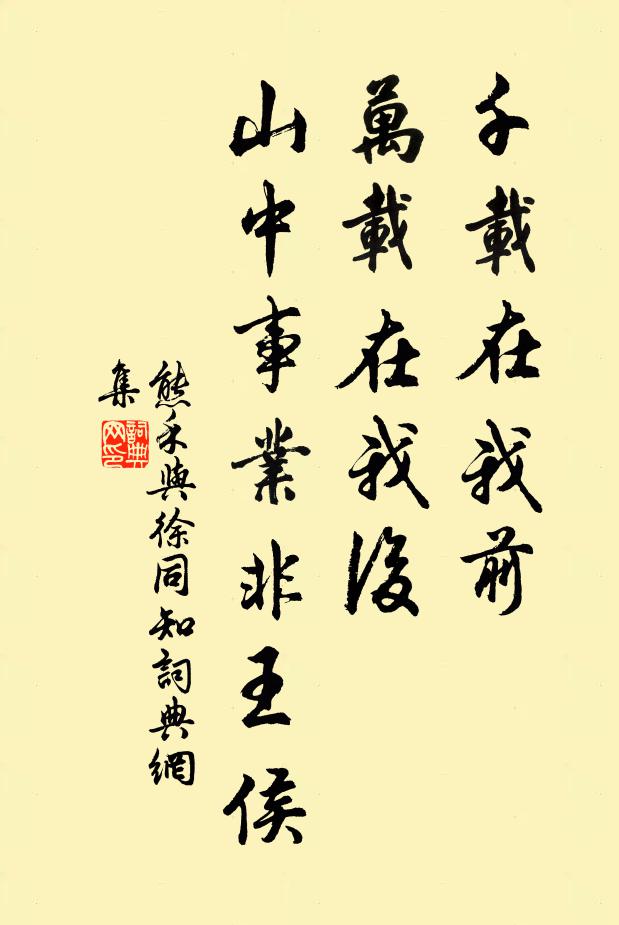 千載在我前
萬載在我後
山中事業非王侯
熊禾與徐同知詞典網
集
詞典
网印